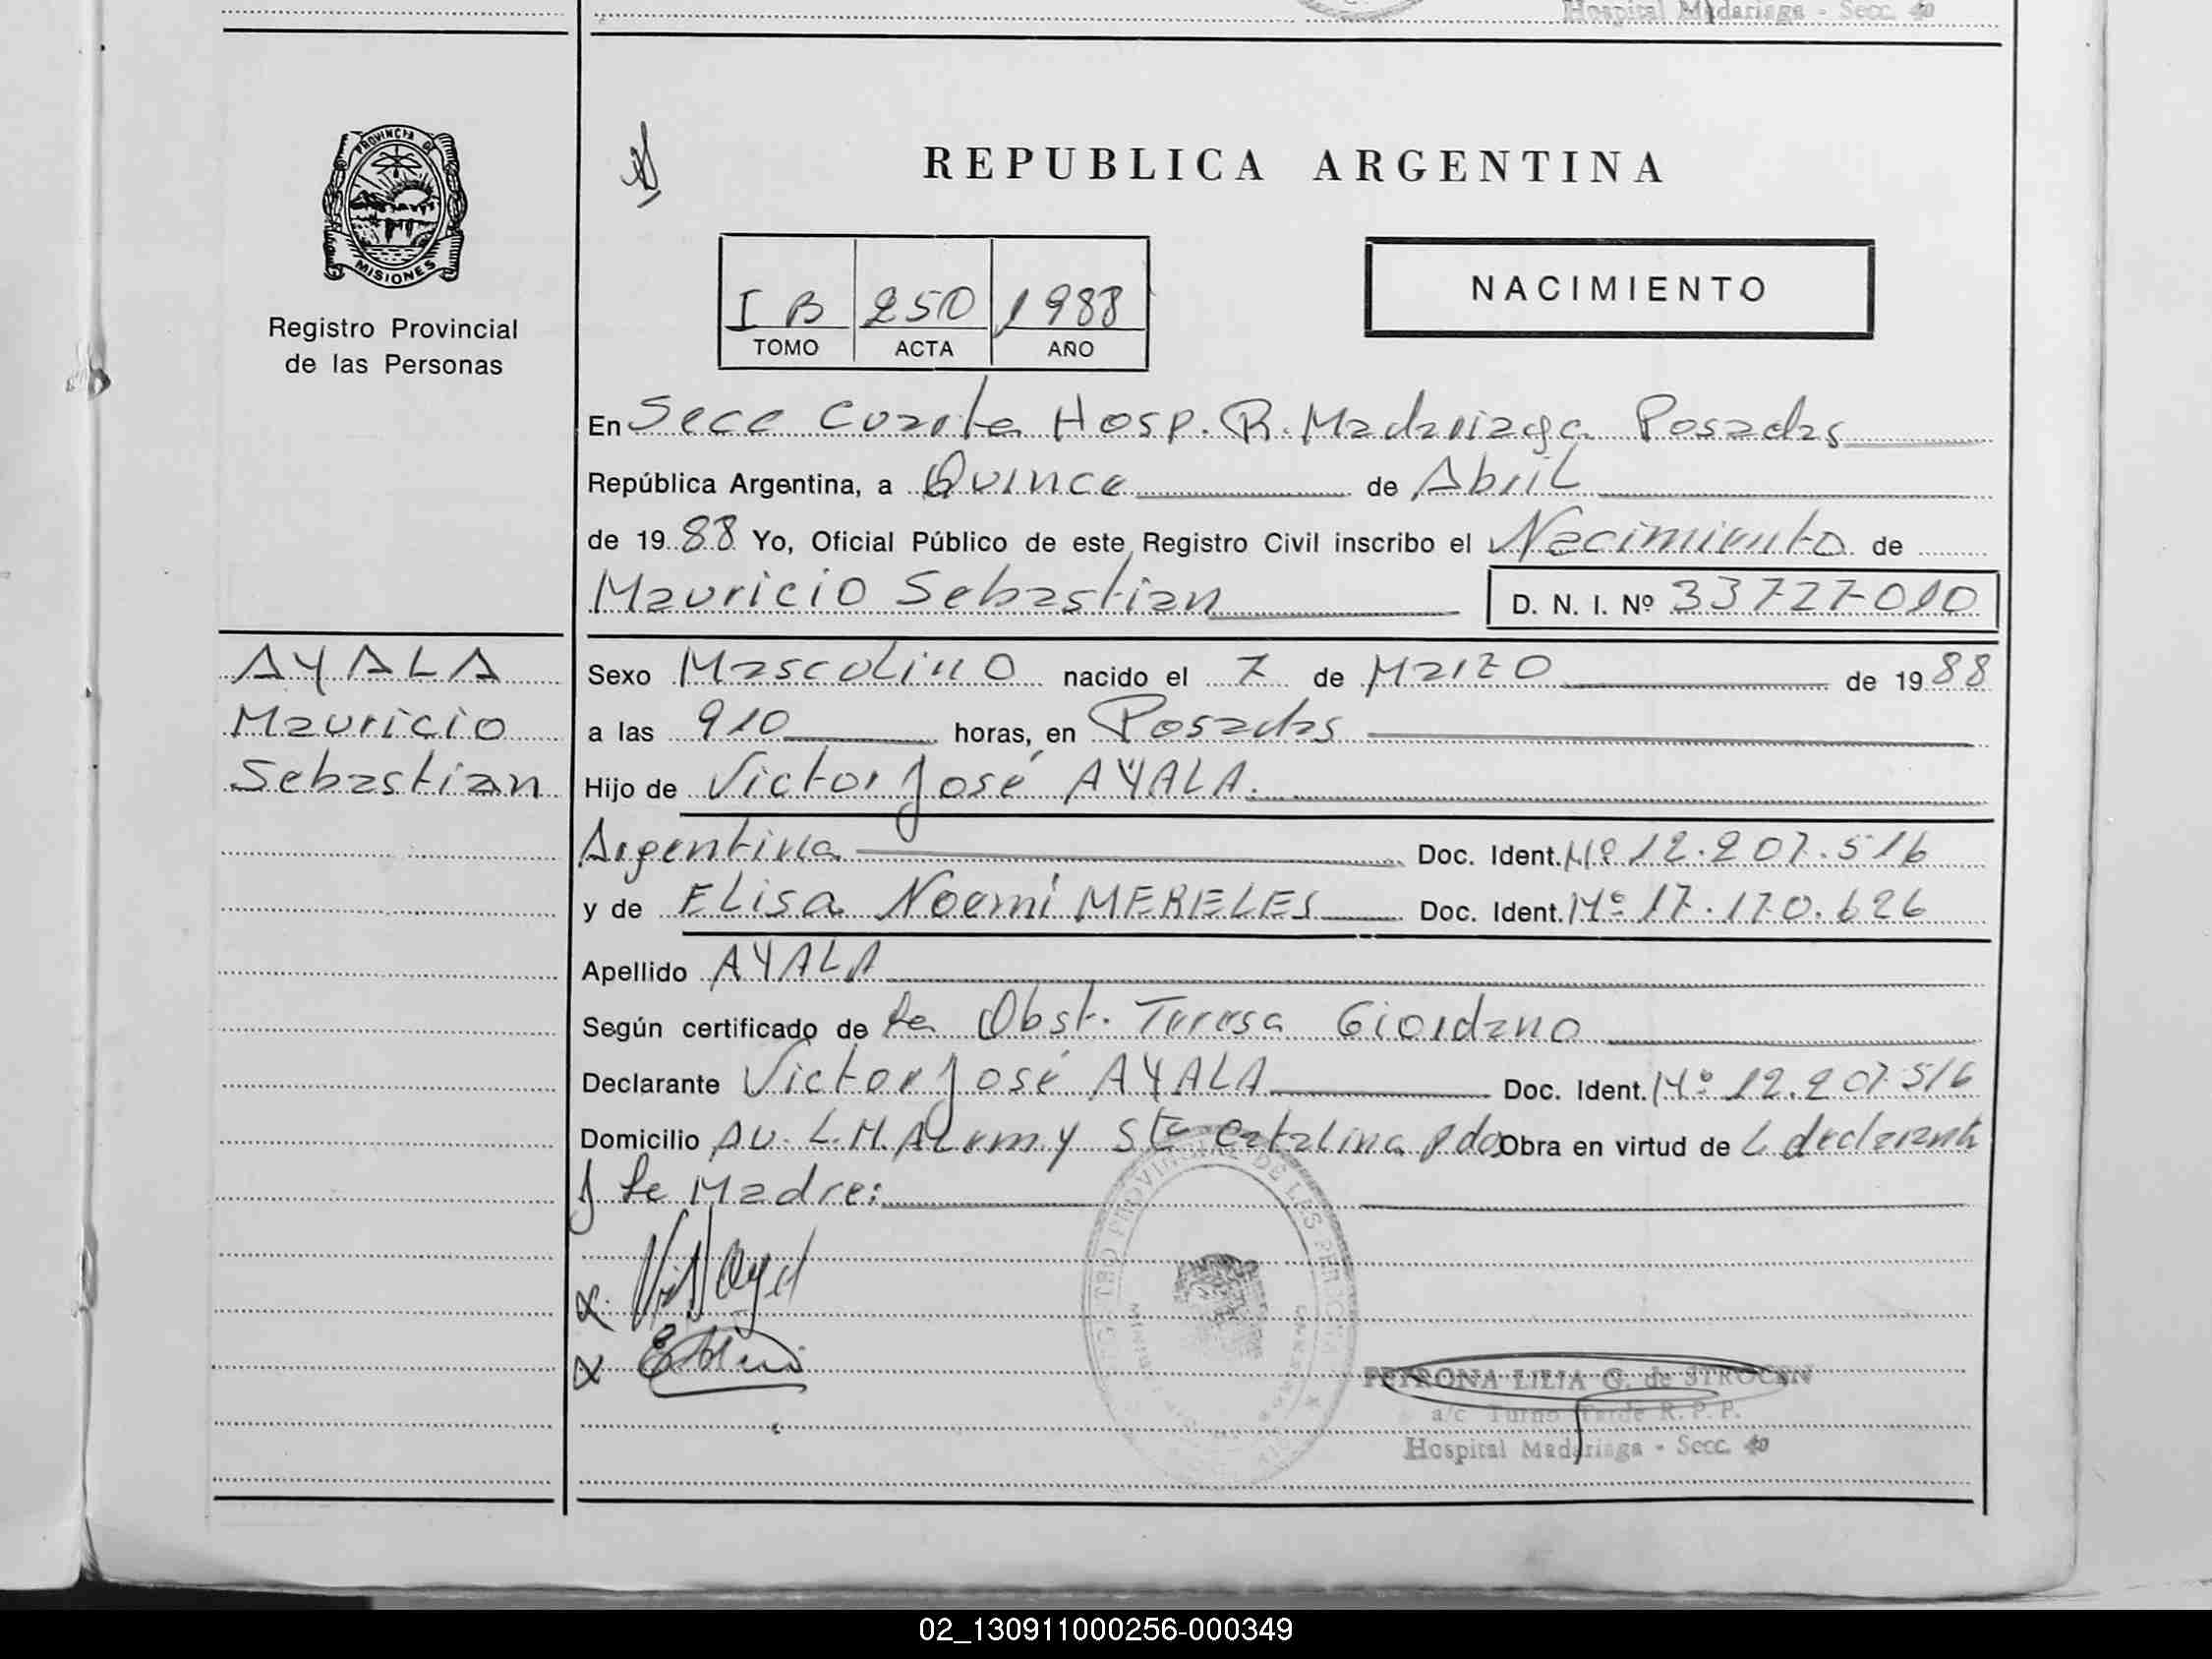 Hospital Madariaga - Secc. 4o
PROVINCIA DE
MISIONES
Registro Provincial
de las Personas
REPUBLICA ARGENTINA
I B 250 1988
TOMO ACTA AÑO
NACIMIENTO
En Secc Cuarta Hosp. R. Madariaga Posadas
República Argentina, a Quince de Abril
de 1988 Yo, Oficial Público de este Registro Civil inscribo el Nacimiento de
Mauricio Sebastian D. N. I. Nº 33727010
AYALA
Mauricio
Sebastian
Sexo Masculino nacido el 7 de Marzo de 1988
a las 910 horas, en Posadas
Hijo de Victor José AYALA.
Argentina Doc. Ident. Mº 12.207.516
y de ELisa Noemí MERELES Doc. Ident. Mº 17.170.626
Apellido AYALA
Según certificado de la Obst. Teresa Giordano
Declarante Victor José AYALA Doc. Ident. Mº 12.207.516
Domicilio AV. L.N. ALem y Sta Catalina Pdas Obra en virtud de L declarante
y la Madre:
PETRONA LILIA G. de STROCEN
a/c Turno Tarde R. P. P.
Hospital Madariaga - Secc. 4o
02_130911000256-000349